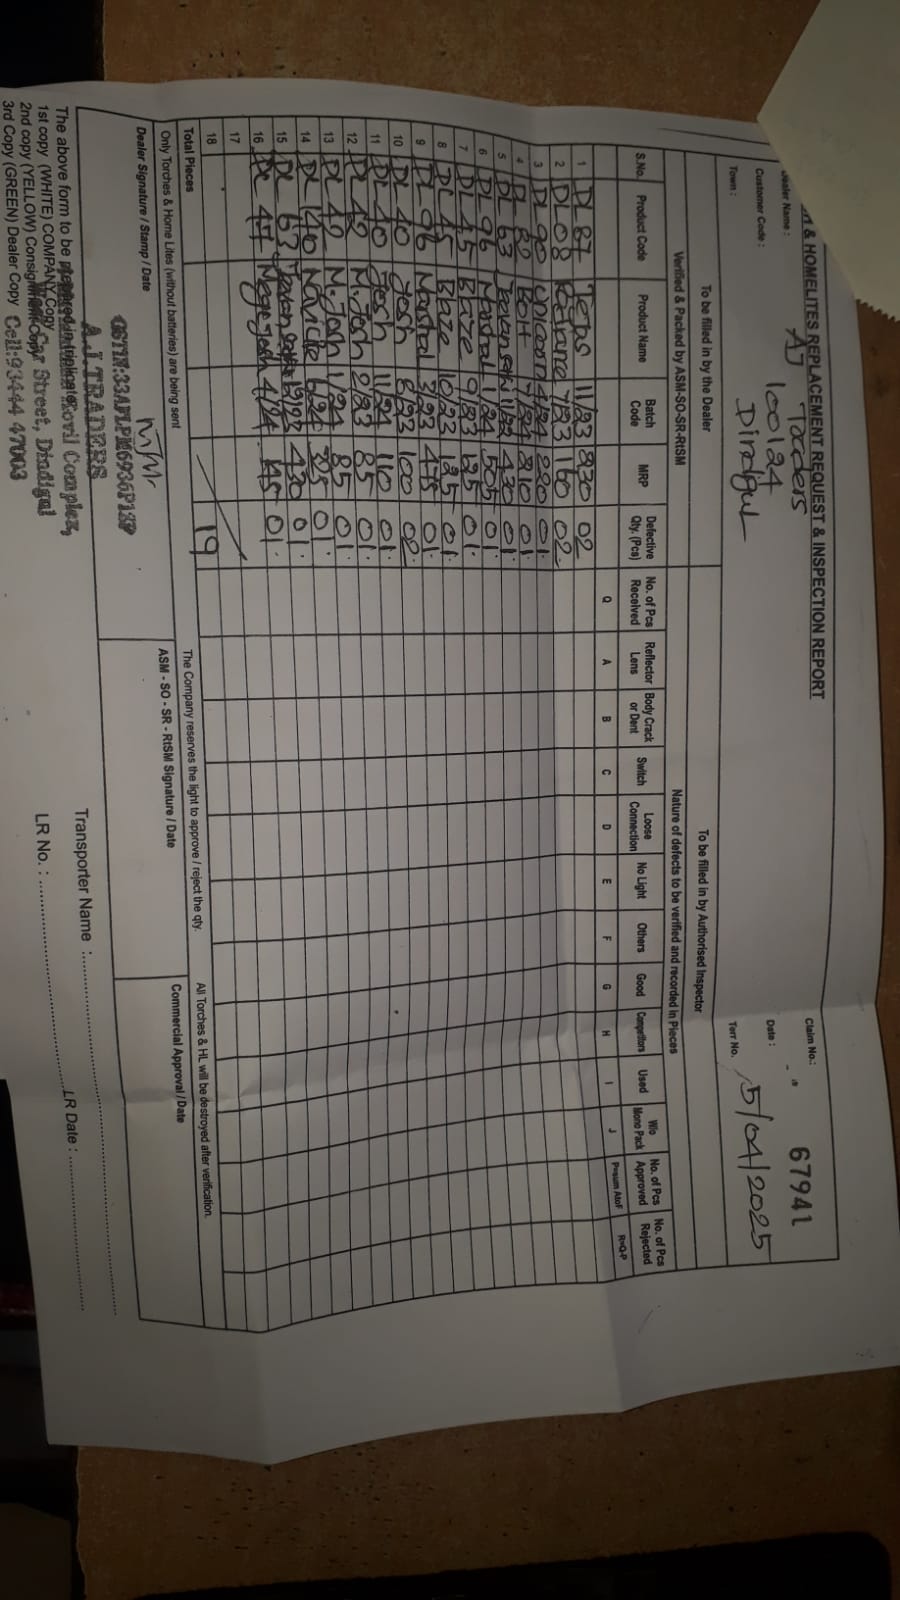 & HOMELITES REPLACEMENT REQUEST & INSPECTION REPORT
Dealer Name : AJ Traders
Claim No.: 67941
Customer Code : 100124
Date : 15/04/2025
Town : Dindigul
Terr No.
To be filled in by the Dealer
To be filled in by Authorised Inspector
Verified & Packed by ASM-SO-SR-RtSM
Nature of defects to be verified and recorded in Pieces
S.No. Product Code Product Name Batch Code MRP Defective Qty. (Pcs) No. of Pcs Received Reflector Lens Body Crack or Dent Switch Loose Connection No Light Others Good Competitors Used W/o Mono Pack No. of Pcs Approved No. of Pcs Rejected
Q A B C D E F G H I J P=sum AtoF R=Q-P
1 DL 87 11/23 830 02
2 DL08 7/23 160 02
3 DL 90 4/24 220 01
4 DL 82 Bolt 7/24 310 01
5 DL 63 11/22 430 01
6 DL 96 1/24 505 01
7 DL 45 Blaze 9/23 125 01
8 DL 45 Blaze 10/23 125 01
9 DL 96 3/23 475 01
10 DL 40 Josh 8/23 100 02
11 DL 40 Josh 11/24 110 01
12 DL 42 M.Josh 2/23 85 01
13 DL 42 M.Josh 1/24 85 01
14 DL 140 01
15 DL 63 12/22 430 01
16 DL 47 4/24 45 01
17
18
Total Pieces 19
The Company reserves the light to approve / reject the qty.
All Torches & HL will be destroyed after verification.
Only Torches & Home Lites (without batteries) are being sent
Dealer Signature / Stamp / Date
ASM - SO - SR - RtSM Signature / Date
Commercial Approval / Date
A.J.TRADERS
The above form to be
Kovil Complex,
1st copy (WHITE) COMPANY Copy
Car Street, Dindigul
2nd copy (YELLOW)
3rd Copy (GREEN) Dealer Copy Cell:93444 47003
Transporter Name :
LR No. : LR Date :